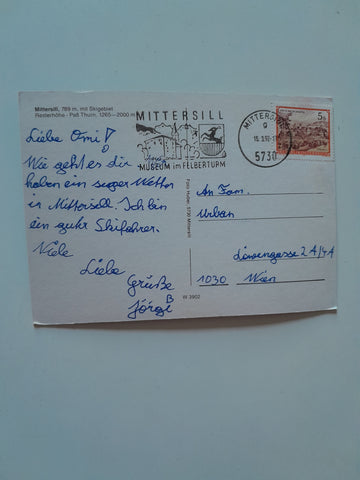 Mittersill, 789 m, mit Skigebiet
Resterhöhe - Paß Thurn, 1265-2000 m
MITTERSILL
MUSEUM im FELBERTURM
MITTERSILL
5730
5 S
Liebe Omi!
Wie geht es dir
haben ein super Wetter
in Mittersill. Ich bin
ein guhr Skifahrer.
Viele
Liebe
Grüße
B
Jörgi
An Fam.
Urban
Löwengasse 2A/4A
1030 Wien
W 3902